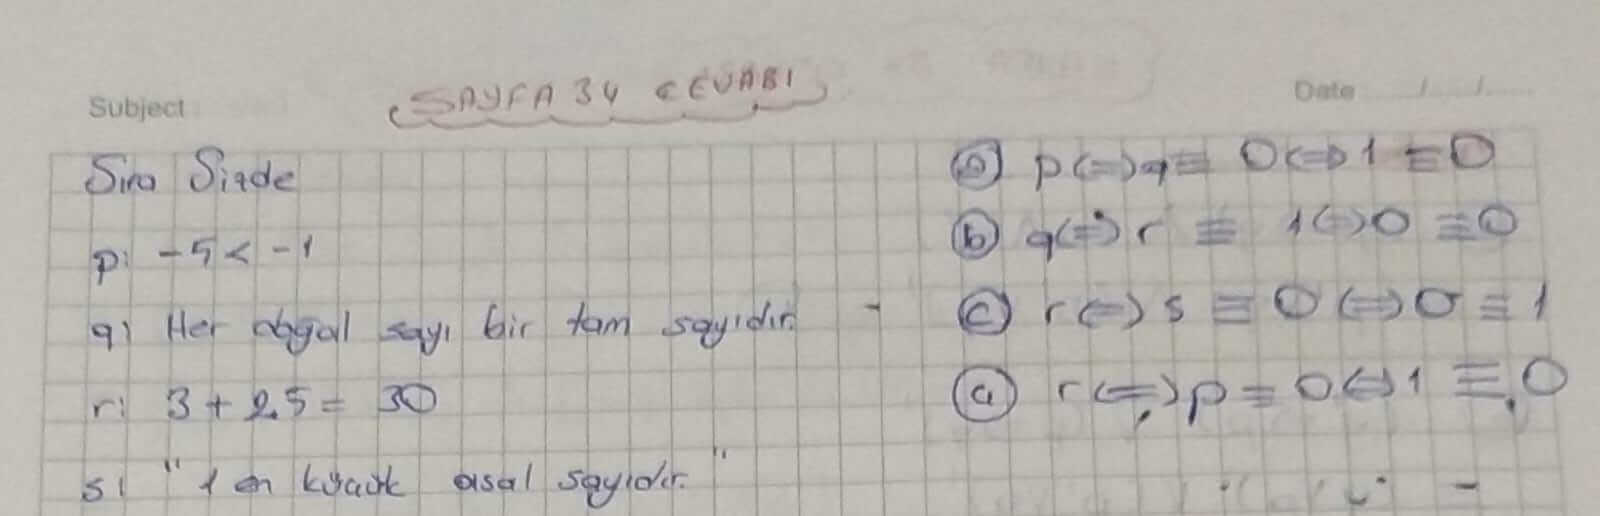 SAYFA 34 CEVABI
Subject
Date / /
Sıra Sizde
p: -5 < -1
q: Her doğal sayı bir tam sayıdır.
r: 3 + 2.5 = 30
s: "1 en küçük asal sayıdır."
a) p⇔q ≡ 0⇔1 ≡ 0
b) q⇔r ≡ 1⇔0 ≡ 0
c) r⇔s ≡ 0⇔0 ≡ 1
a) r⇔p ≡ 0⇔1 ≡ 0